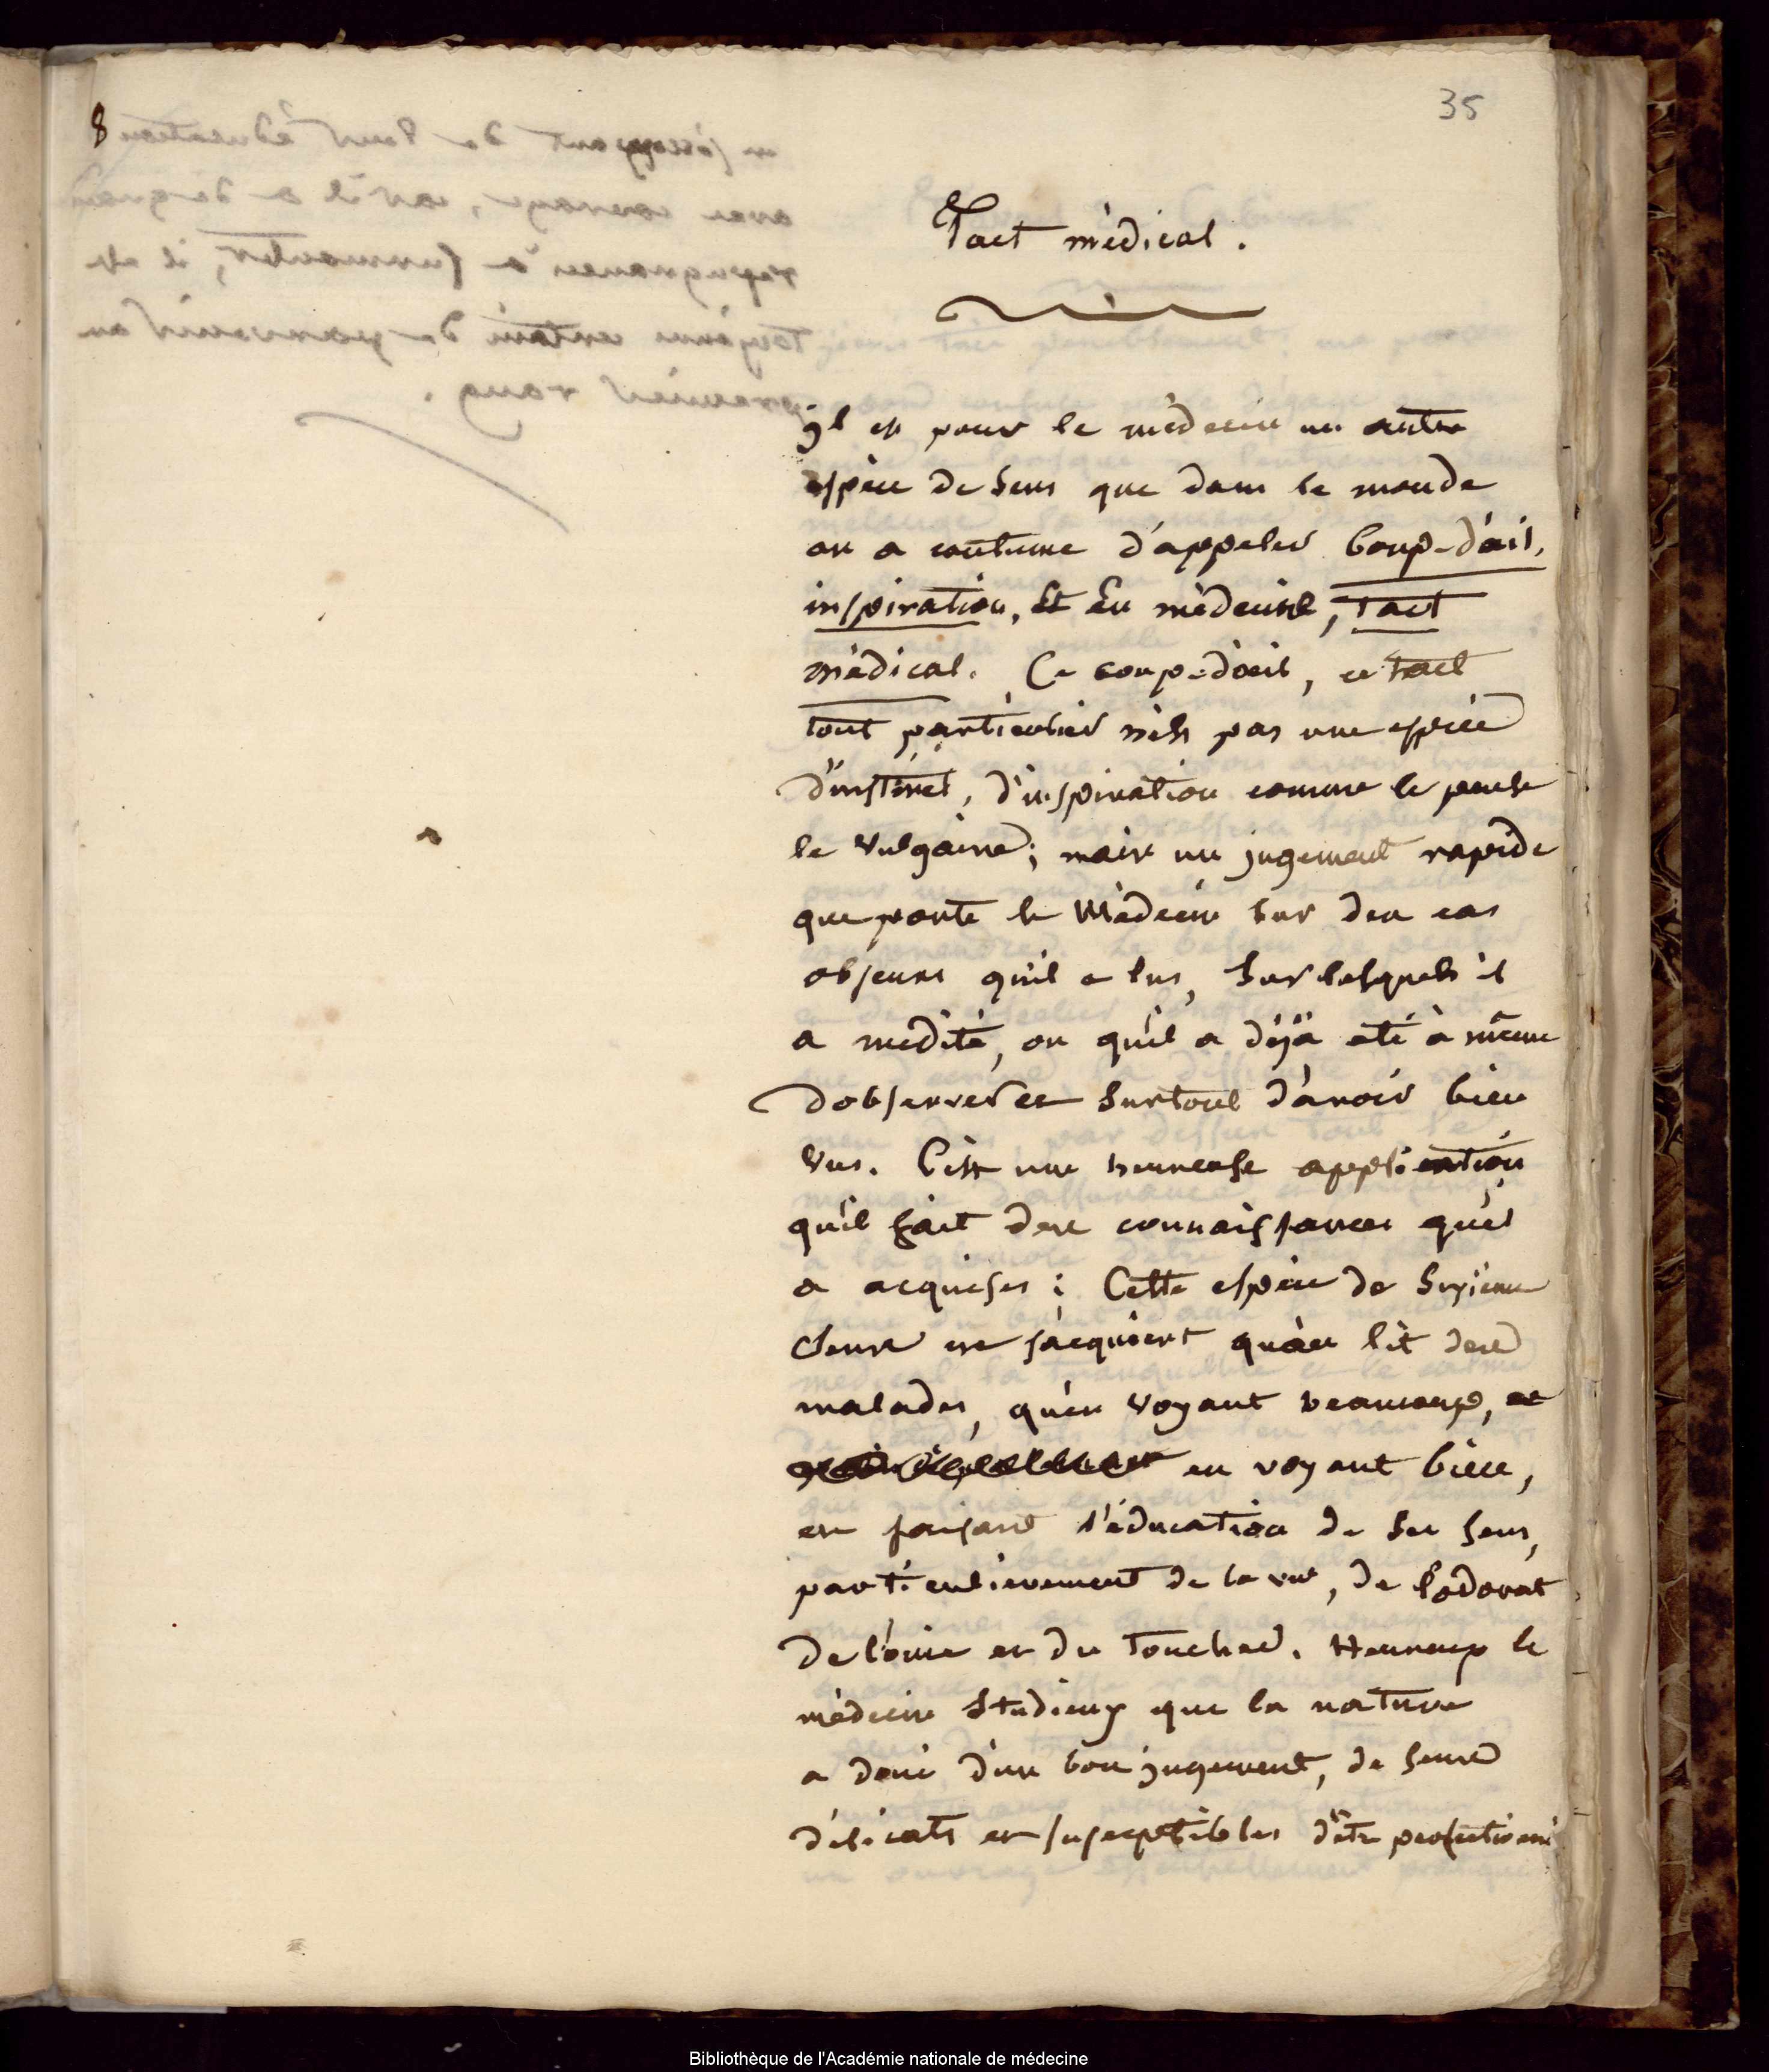 8
35
Tact médical.
Il est pour le médecin un autre
espèce de sens que dans le monde
on a coutume d'appeler Coup-d'œil,
inspiration, Et En médecine, tact
médical. Ce coup-d'œil, ce tact
tout particulier n'est pas une espèce
d'instinct, d'inspiration comme le pense
le vulgaire; mais un jugement rapide
que porte le Médecin sur des cas
obscurs qu'il a lus, sur lesquels il
a médité, ou qu'il a déjà été à même
d'observer et surtout d'avoir bien
vus. C'est une heureuse application
qu'il fait des connaissances qu'il
a acquises; Cette espèce de sixième
sens ne s'acquiert qu'au lit des
malades, qu'en voyant beaucoup, et
en voyant bien,
en faisant l'éducation de ses sens,
particulièrement de la vue, de l'odorat
de l'ouie et du toucher. Heureux le
médecin studieux que la nature
a doué d'un bon jugement, de sens
délicats et susceptibles d'être perfectionné
Bibliothèque de l'Académie nationale de médecine